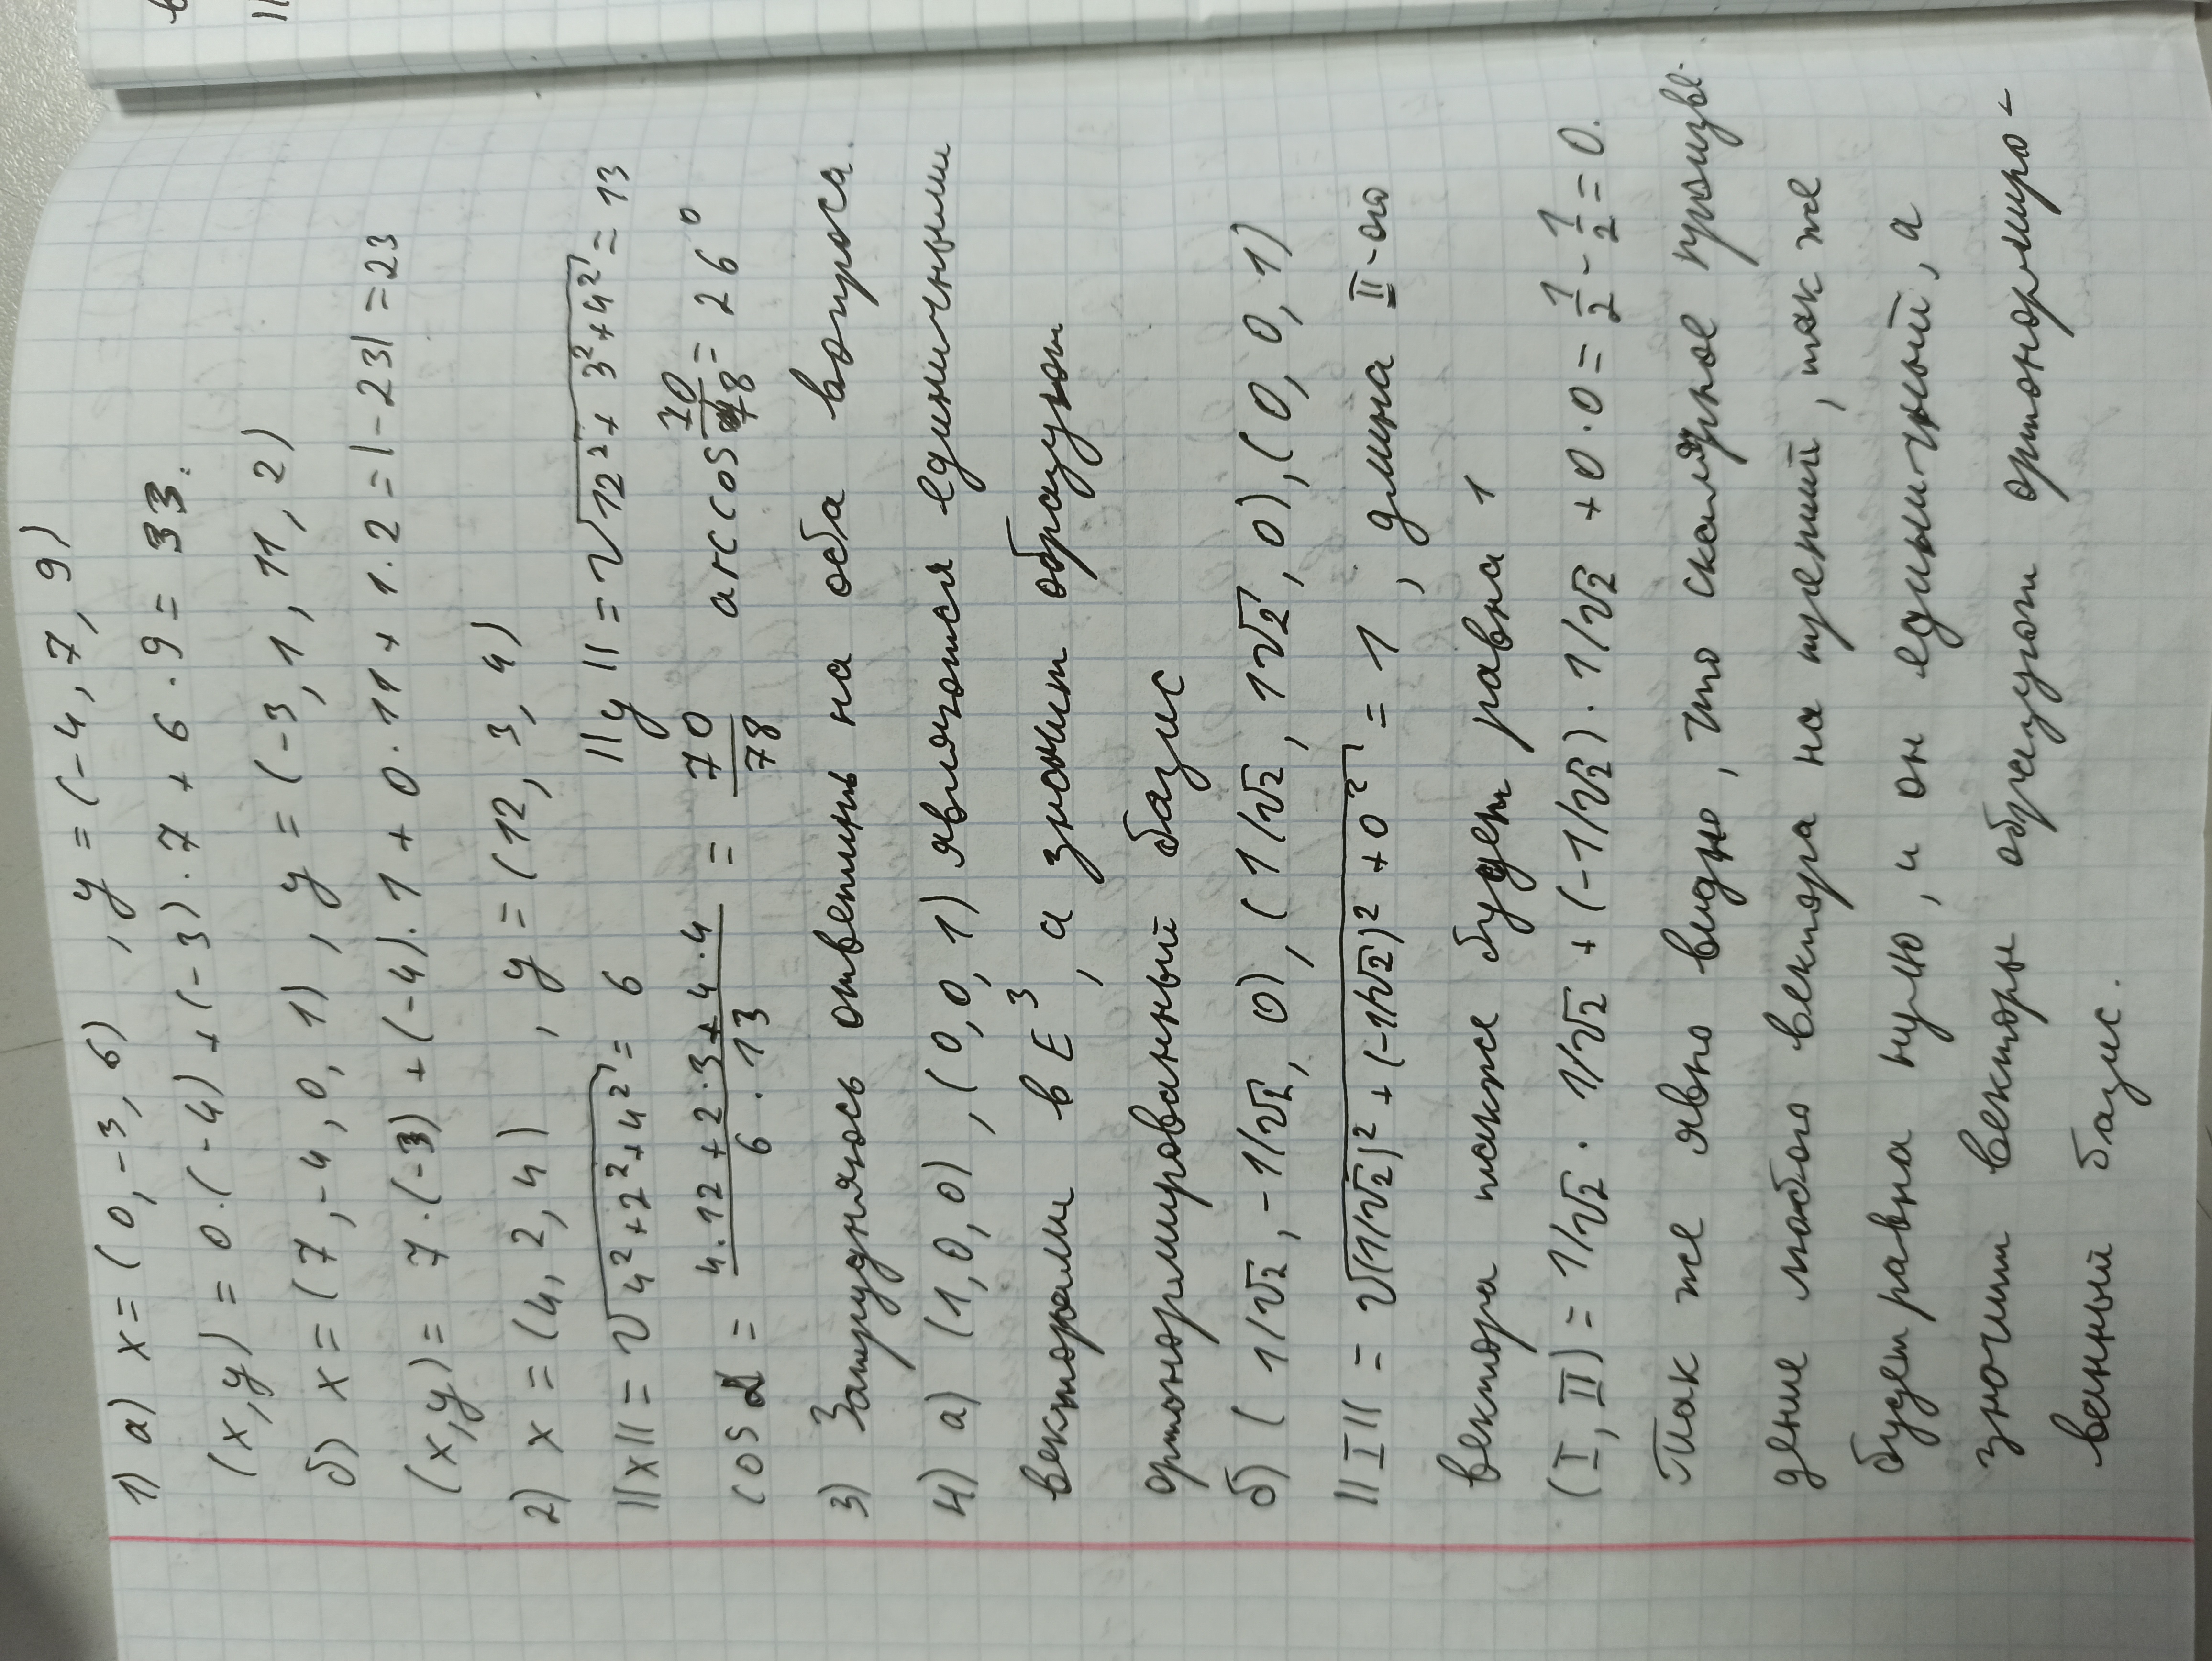 1) а) x = (0, -3, 6) , y = (-4, 7, 9)
(x,y) = 0·(-4) + (-3)·7 + 6·9 = 33.
б) x = (7, -4, 0, 1) , y = (-3, 1, 11, 2)
(x,y) = 7·(-3) + (-4)·1 + 0·11 + 1·2 = |-23| = 23
2) x = (4, 2, 4) , y = (12, 3, 4)
||x|| = √(4²+2²+4²) = 6 ||y|| = √(12²+3²+4²) = 13
cos α = (4·12+2·3+4·4)/(6·13) = 70/78 arccos 70/78 = 26°
3) Затрудняюсь ответить на оба вопроса.
4) а) (1,0,0) , (0,0,1) являются единичными
векторами в E³, а значит образуют
ортонормированный базис
б) (1/√2, -1/√2, 0), (1/√2, 1√2, 0), (0, 0, 1)
||I|| = √((1/√2)² + (-1/√2)² + 0²) = 1 , длина II-ого
вектора также будет равна 1
(I, II) = 1/√2 · 1/√2 + (-1/√2) · 1/√2 + 0·0 = 1/2 - 1/2 = 0.
Так же явно видно, что скалярное произве-
дение любого вектора на третий, так же
будет равна нулю, и он единичный, а
значит векторы образуют ортонормиро-
ванный базис.